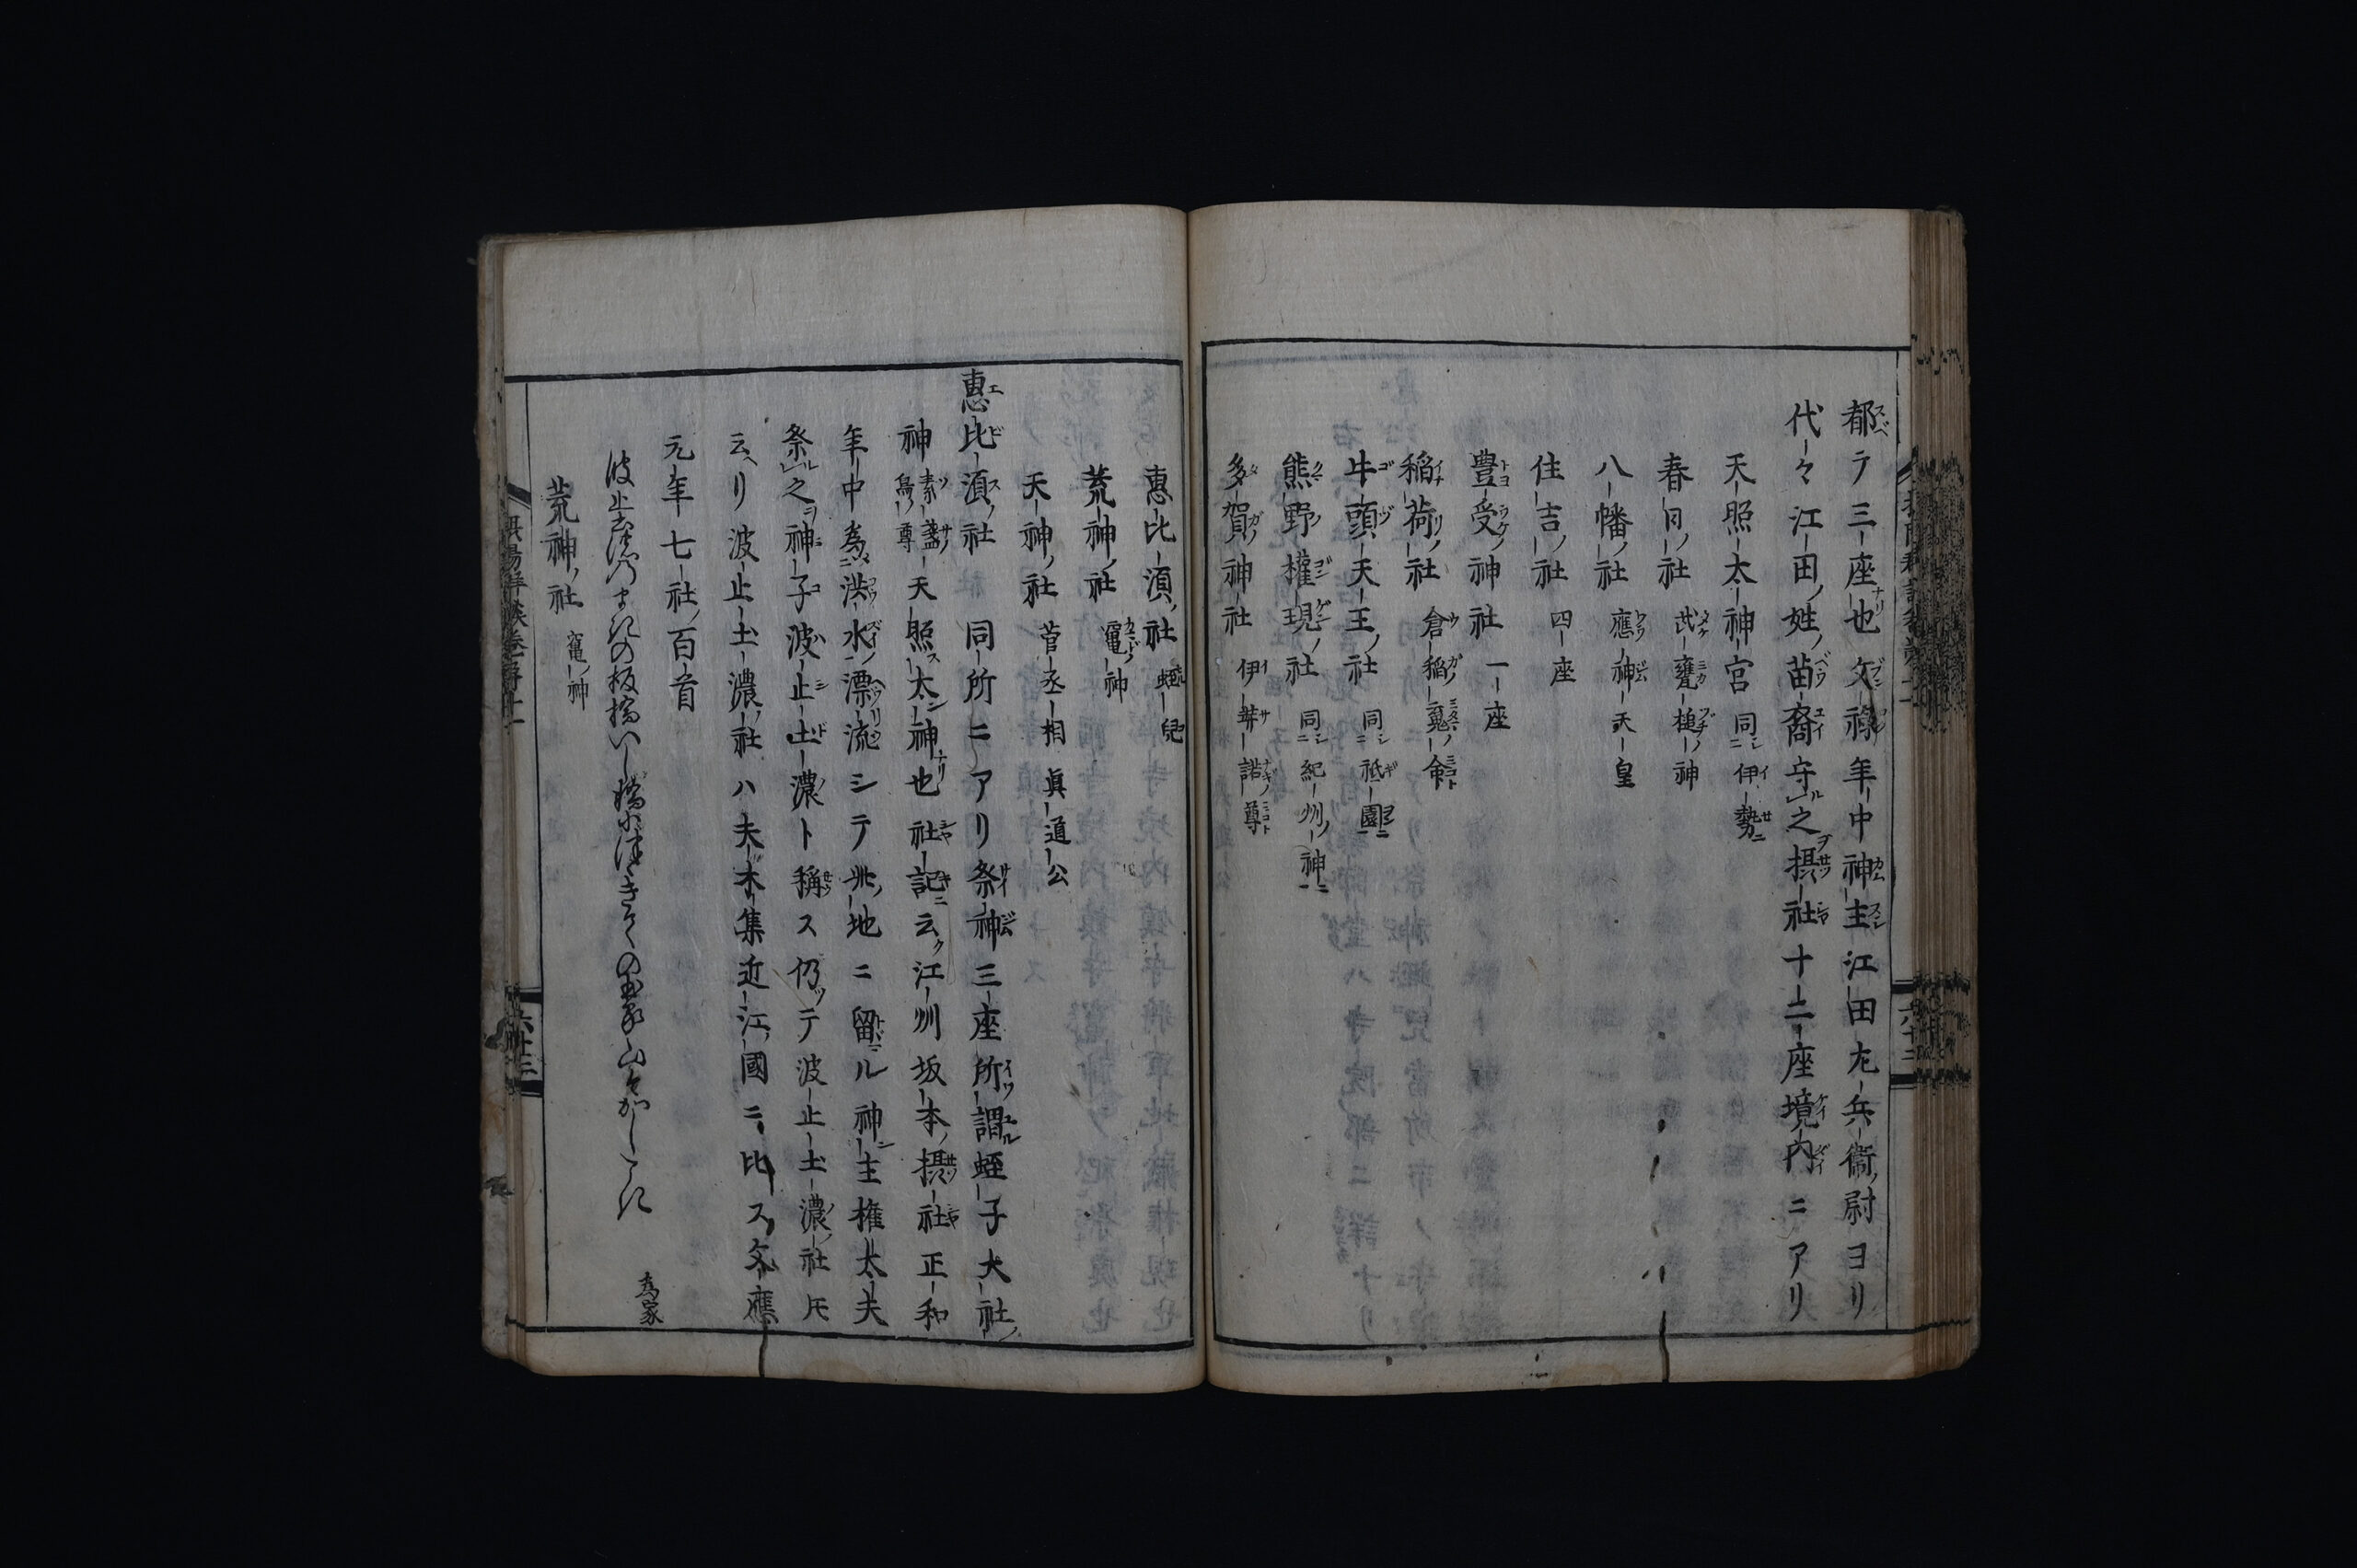 都テ三座也文禄年中神主江田左兵衞尉ヨリ
代々江田ノ姓ノ苗裔守ル之ヲ摂社十二座境内ニアリ
天照太神宮 同シ伊勢ニ
春日ノ社 武甕槌ノ神
八幡ノ社 應神天皇
住吉ノ社 四座
豊受ノ神社 一座
稲荷ノ社 倉稲魂ノ命
牛頭天王ノ社 同シ祇園ニ
熊野権現ノ社 同シ紀州ノ神ニ
多賀ノ神社 伊弉諾ノ尊
惠比須ノ社 蛭兒
荒神ノ社 竃ノ神
天神ノ社 菅丞相 眞道公
惠比須ノ社 同所ニアリ祭神三座所謂蛭子大社ノ
神 素盞烏ノ尊 天照太神也社記ニ云ク江州坂本ノ摂社正和
年中為ニ洪水ノ漂流シテ此ノ地ニ留ル神主権太夫
祭ル之ヲ神子波止土濃ト稱ス仍ッテ波止土濃ノ社ト
云ヘリ波止土濃ノ社ハ夫木集近江ノ國ニ比ス文應
元年七社ノ百首
為家
荒神ノ社 竃ノ神
六十三